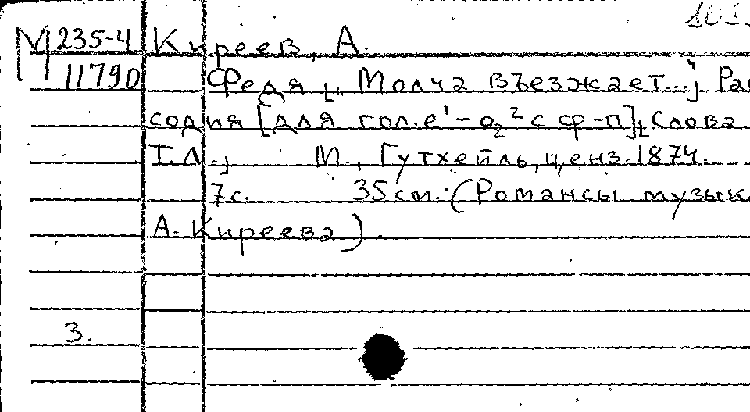 101
М 235-4 Киреев, А.
11790 Федя [„Молча въезжает..."] Рап
содия [для гол. e¹-a² с ф-п], Слова
I.Л., М., Гутхейль, ценз. 1874.
7с. 35см. (Романсы музык
А. Киреева).
3.